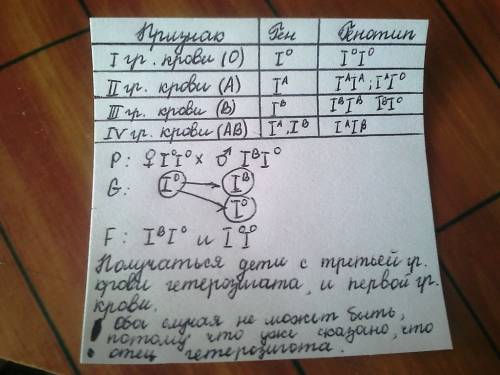 Признак Ген Генотип
I гр. крови (O) I⁰ I⁰I⁰
II гр. крови (A) Iᴬ IᴬIᴬ; IᴬI⁰
III гр. крови (B) Iᴮ IᴮIᴮ IᴮI⁰
IV гр. крови (AB) Iᴬ, Iᴮ IᴬIᴮ
P: ♀ I⁰I⁰ × ♂ IᴮI⁰
G: I⁰ → Iᴮ
I⁰
F: IᴮI⁰ и I⁰I⁰
Получаться дети с третьей гр.
крови гетерозигата, и первой гр.
крови.
Оба случая не может быть,
потому что уже сказано, что
отец гетерозигота.